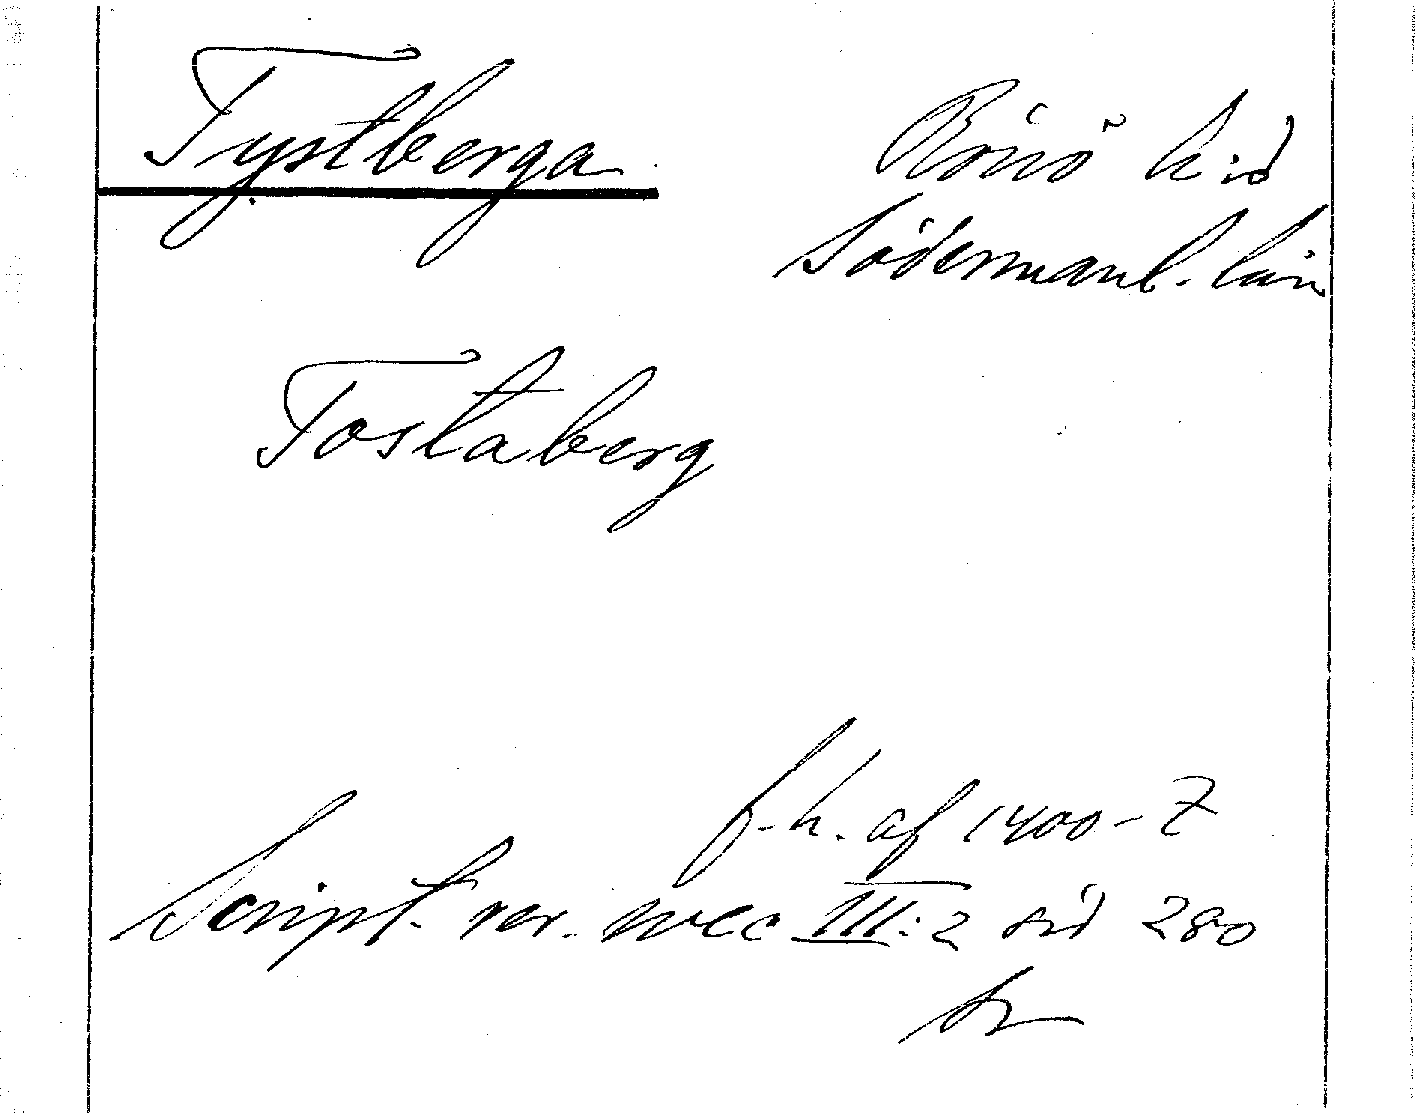 Tystberga
Rönö h:d
Södermanl. län
Tostaberg
f. h. af 1400-t
Script. rer. svec III:2 sid 280